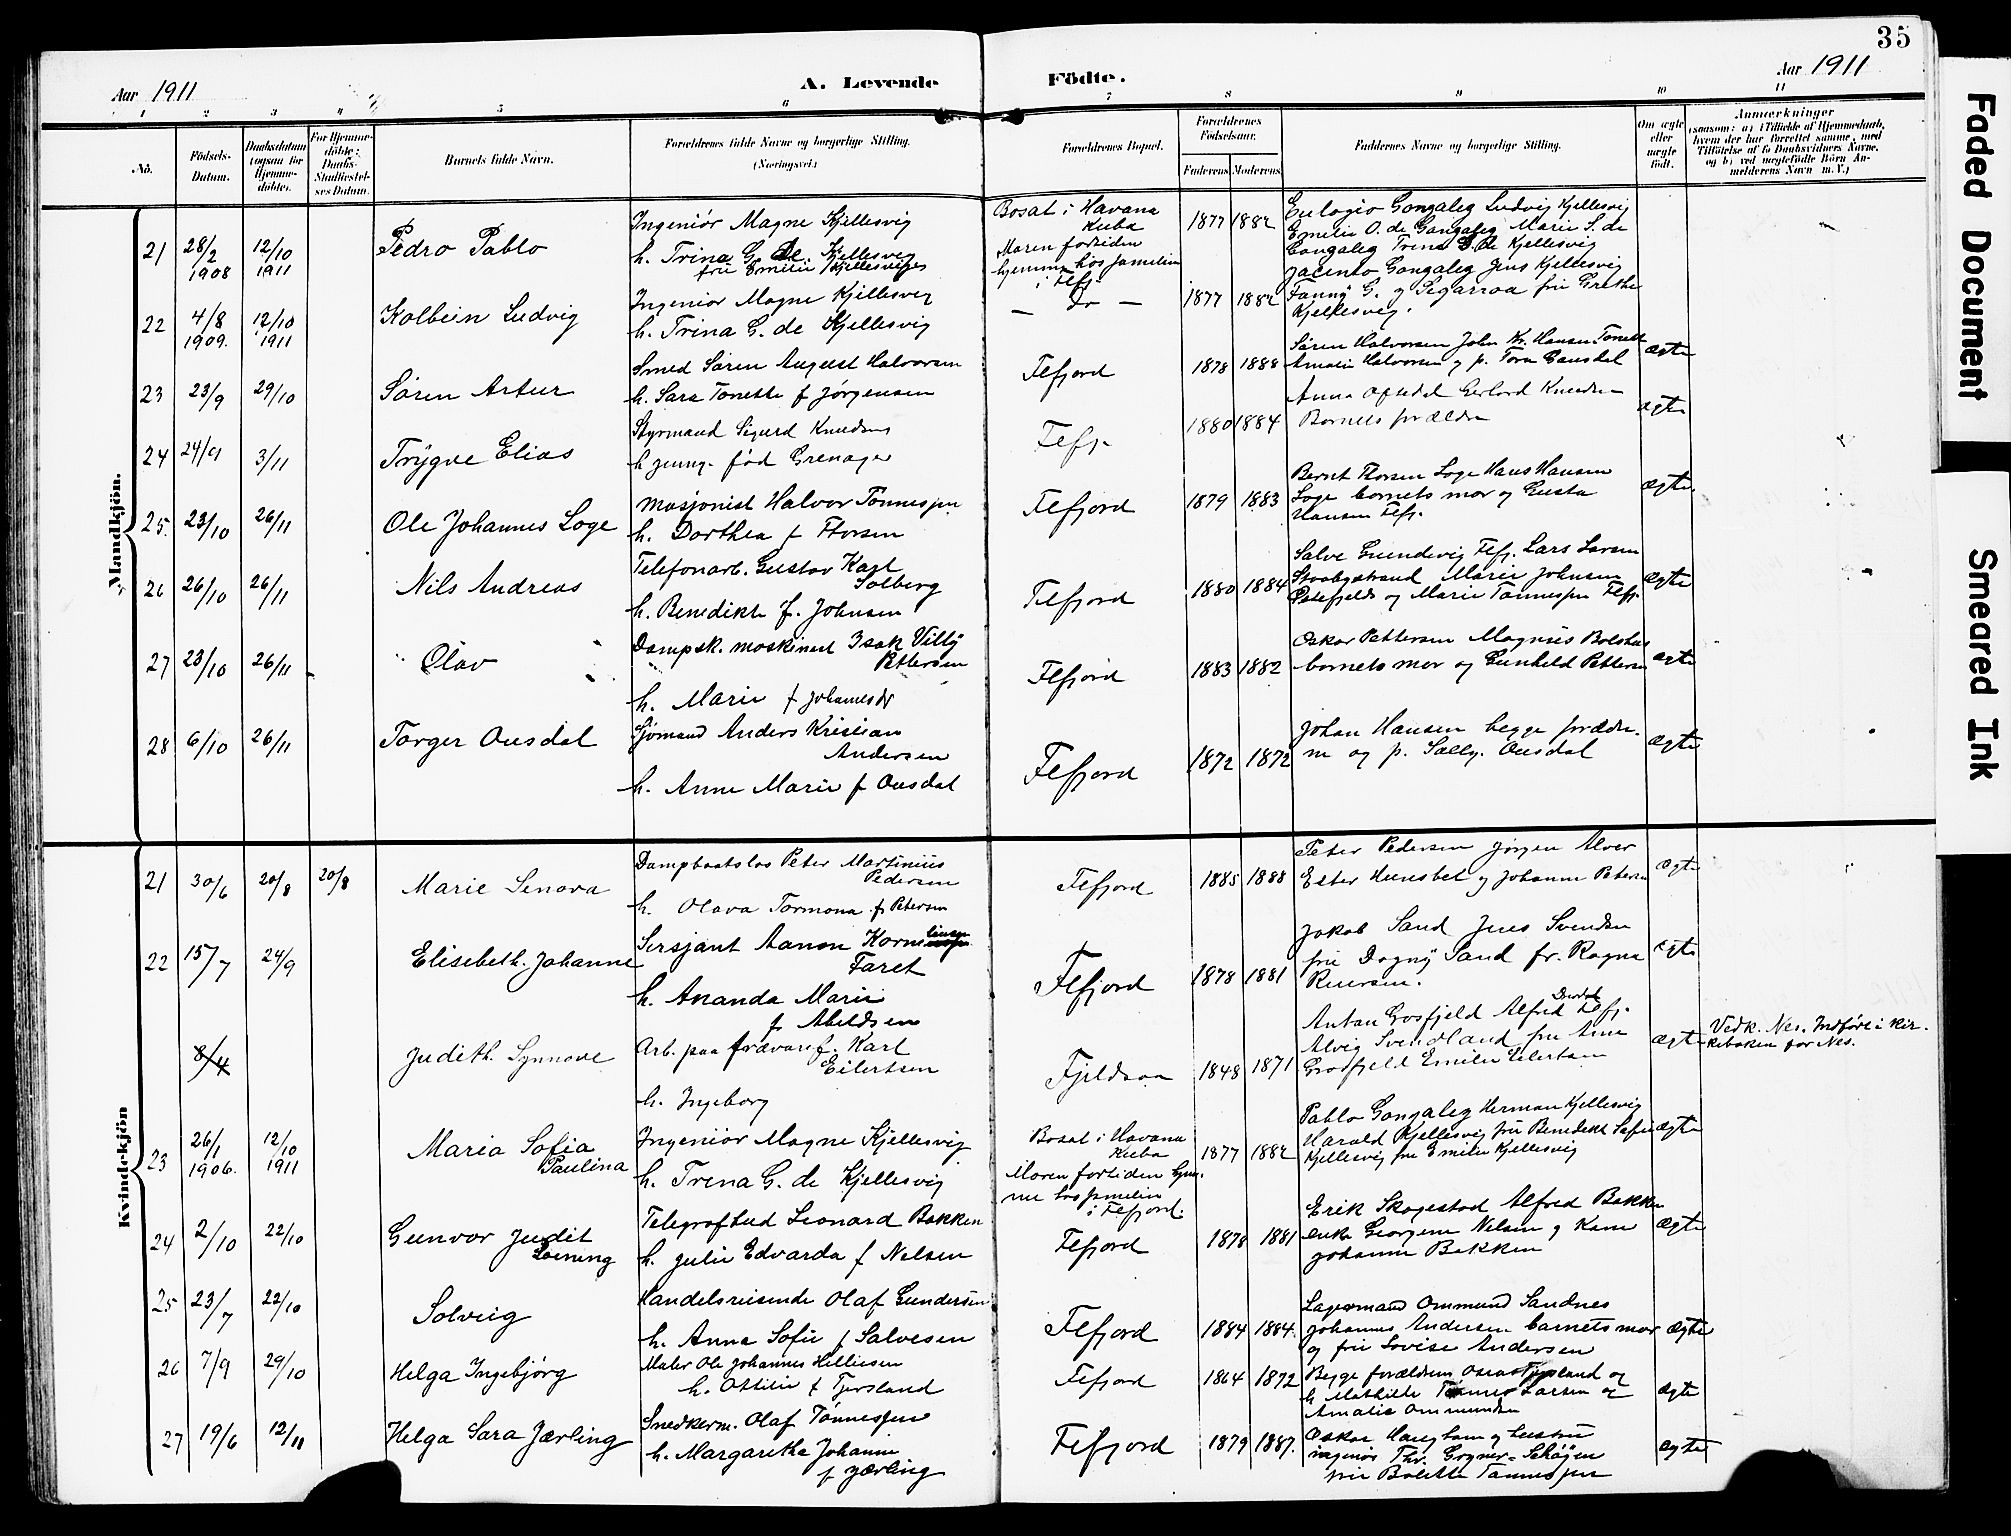 35
Aar 1911
A. Levende
Födte.
Aar 1911
1 2 3 4 5 6 7 8 9 10 11
No.
Födsels-
Datum.
Daabsdatum
(ogsaa for
Hjemme-
döbte).
For Hjemme-
döbte:
Daabs-
Stadfæstel-
ses Datum.
Barnets fulde Navn.
Forældrenes fulde Navne og borgerlige Stilling.
(Næringsvei.)
Forældrenes Bopæl.
Forældrenes
Födselsaar.
Faderens Moderens
Faddernes Navne og borgerlige Stilling.
Om ægte
eller
uægte
født.
Anmærkninger
(saasom: a) i Tilfælde af Hjemmedaab,
hvem der har forrettet samme, med
Tilföielse af to Daabsvidners Navne,
og b) ved uægtefödte Börn An-
melderens Navn m. V.)
Mandkjön.
21 28/2 1908 12/10 1911 Pedro Pablo
Ingeniör Magne Kjellesvig
h. Trina G. de Kjellesvig
fru Emilie Kjellesviges
Bosat i Havana
Kuba
Moren fortiden
hjemme hos familien
i Flefj.
1877 1882
Eulogio Gonzaleg Ludvig Kjellesvig
Emilie O. de Gongaleg Marie S. de
Gongaleg Trina G. de Kjellesvig
22 4/8 1909. 12/10 1911 Kolbein Ludvig
Ingeniör Magne Kjellesvig
h. Trina G. de Kjellesvig
— Do —
1877 1882
Jacinto Gongaleg Jens Kjellesvig
Fanny G. y Segarroa fru Grethe
Kjellesvig.
23 23/9 29/10 Søren Artur
Smed Søren August Halvorsen
h. Sara Tonette f Jørgensen
Flefjord
1878 1888
Søren Halvorsen John Kr. Hansen Tonette
Amalie Halvorsen og p. Tora Gausdal
ægte
24 24/9 3/11 Trygve Elias
Styrmand Sigurd Knudsen
h Jenny. född Grenager
Flefj.
1880 1884
Anna Ofstedal Gerhard Knudsen
Barnets forældre
ægte
25 23/10 26/11 Ole Johannes Loge
Maskinist Halvor Tønnessen
h. Dorthea f Thorsen
Flefjord
1879 1883
Bernt Thorsen Loge Hans Hansen
Loge barnets mor og Gusta
Hansen Flefj.
ægte
26 26/10 26/11 Nils Andreas
Telefonarb. Gustav Karl
Solberg
h. Benedikte f. Johnsen
Flefjord
1880 1884
Salve Gundevig Flefj. Lars Larsen
Marie Johnsen
og Marie Tønnessen Flefj.
ægte
27 23/10 26/11 Olav
Dampsk. maskinist Isak Villy
Pettersen
h. Marie f Johannesdr
Flefjord
1883 1882
Oskar Pettersen Magnus Bolshus
barnets mor og Gunhild Pettersen
ægte
28 6/10 26/11 Torger Ousdal
Sjømand Anders Kristian
Andersen
h. Anne Marie f Ousdal
Flefjord
1872 1872
Johan Hansen begge foræld-
re og p. Sally. Ousdal
ægte
Kvindekjön
21 30/6 20/8 20/8 Marie Senora
Dampbaatslos Peter Martinius
Pedersen
h. Olava Tormona f Petersen
Flefjord
1885 1888
Peter Pedersen Jörgen Alver
Ester Hunsbet og Johanne Petersen
ægte
22 15/7 24/9 Elisebeth. Johanne
Sersjant Aanon Korneliusen
Faret
h. Ananda Marie
f Abeldsen
Flefjord
1878 1881
Jakob Sand Jens Svendsen
fru Dagny Sand fr. Ragna
Reiersen.
ægte
8/4 Judith. Synnøve
Arb. paa trævaref. Karl
Eilertsen
h. Ingeborg
Fjeldsaa
1848 1871
Antan Grosfjeld Alfred Flefj.
Alvig Svendland fru Anne
Grosfjeld Emilie Eilertsen
ægte
Vedk. Nes. Indført i kir-
keboken for Nes.
23 26/1 1906. 12/10 1911 Maria Sofia
Paulina
Ingeniör Magne Kjellesvig
h. Trina G. de Kjellesvig
Bosat i Havana
Kuba
Moren fortiden hjem-
me hos familien
i Flefjord.
1877 1882
Pablo Gongaleg Herman Kjellesvig
Harald Kjellesvig fru Benedikte Sofie
Kjellesvig fru Emilie Kjellesvig
ægte
24 2/10 22/10 Gunvor Judit
Loining
Telegrafbud Leonard Bakken
h. Julie Edvarda f Nelsen
Flefjord
1878 1881
Erik Skogestad Alfred Bakken
enke Georgine Nelsen og Kone
Johanne Bakken
ægte
25 23/7 22/10 Solveig
Handelsreisende Olaf Gundersen
h. Anna Sofie f Salvesen
Flefjord
1884 1884.
Lagermand Ommund Sandnes
Johannes Andersen barnets mor
og fru Lovise Andersen
ægte
26 7/9 29/10 Helga Ingebjörg
Maler Ole Johannes Helliesen
h. Ottilie f Tjersland
Flefjord
1864 1872
Begge forældrene og
h Mathilde Larsen og
Amalie Ommundsen
ægte
27 19/6 12/11 Helga Sara Jærling
Snedkerm. Olaf Tønnessen
h. Margaretha Johanne
f Jærling
Flefjord
1879 1887.
Oskar Haugham og hustru
ingeniør Thv. Grgner-Schøjen
fru Bolette Tønnessen
ægte
Faded Document
Smeared Ink